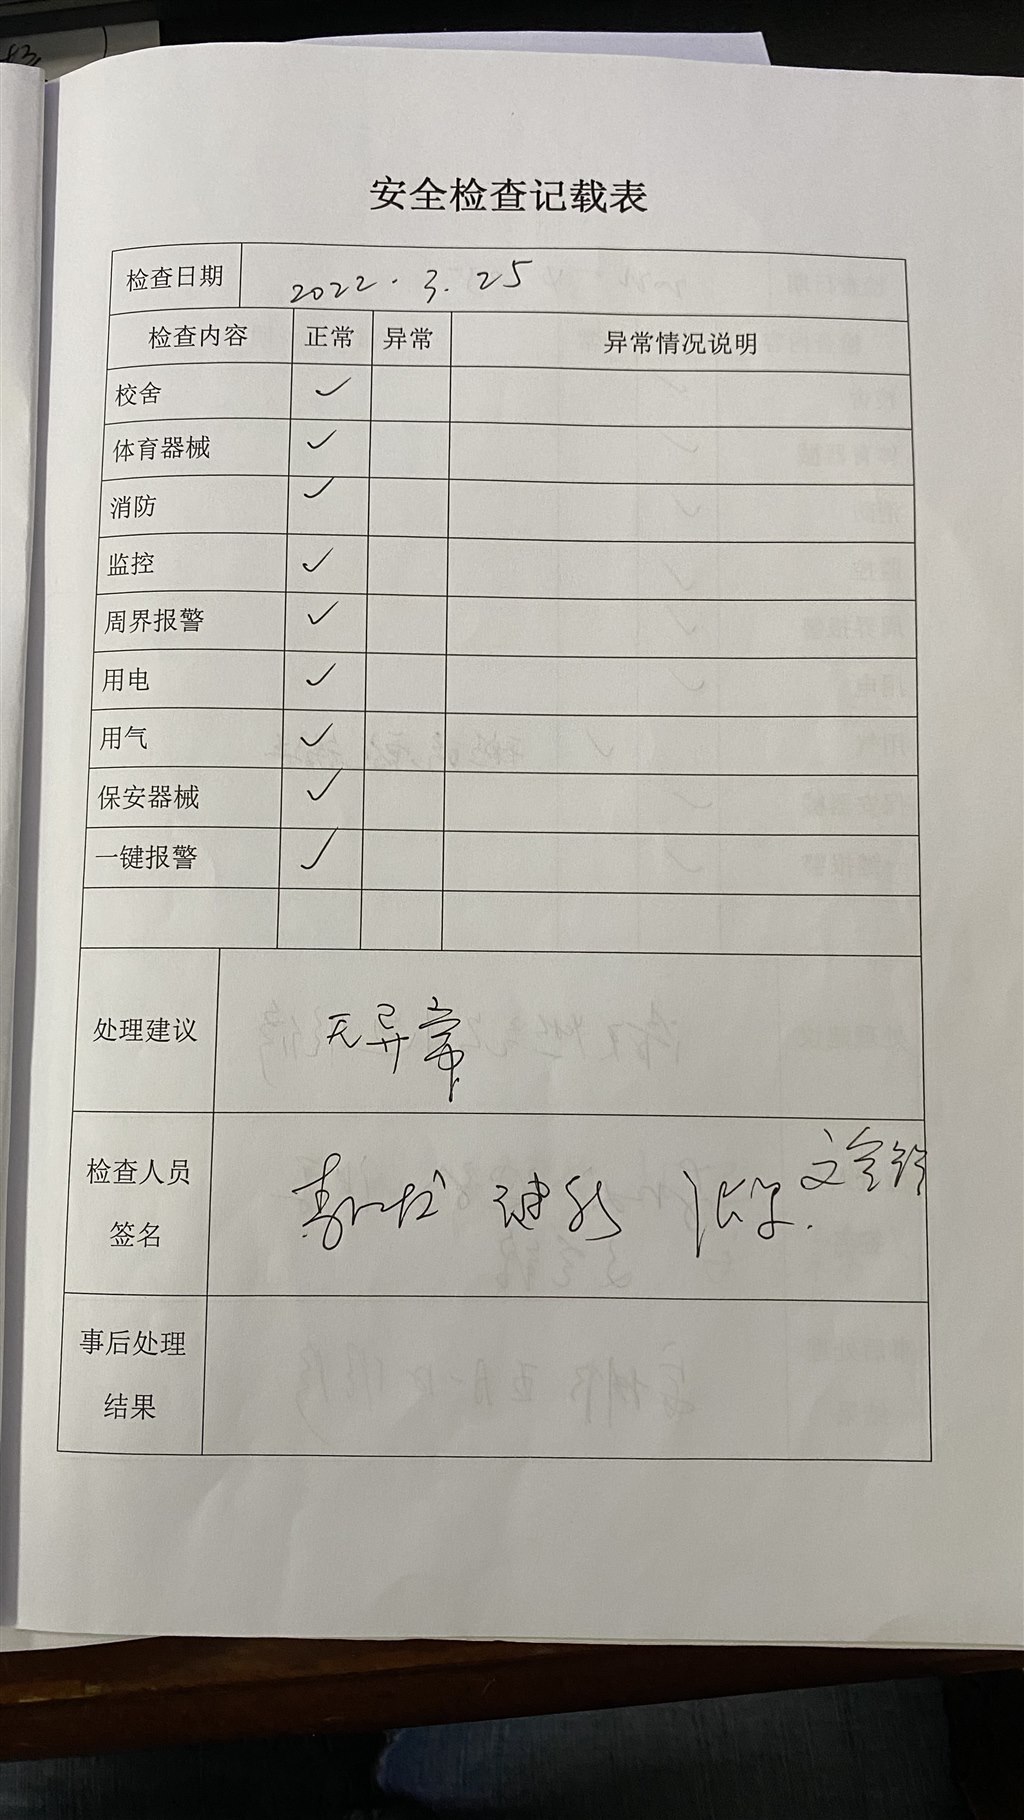 安全检查记载表
检查日期 2022.3.25
检查内容 正常 异常 异常情况说明
校舍 ✓
体育器械 ✓
消防 ✓
监控 ✓
周界报警 ✓
用电 ✓
用气 ✓
保安器械 ✓
一键报警 ✓
处理建议 无异常
检查人员
签名
事后处理
结果